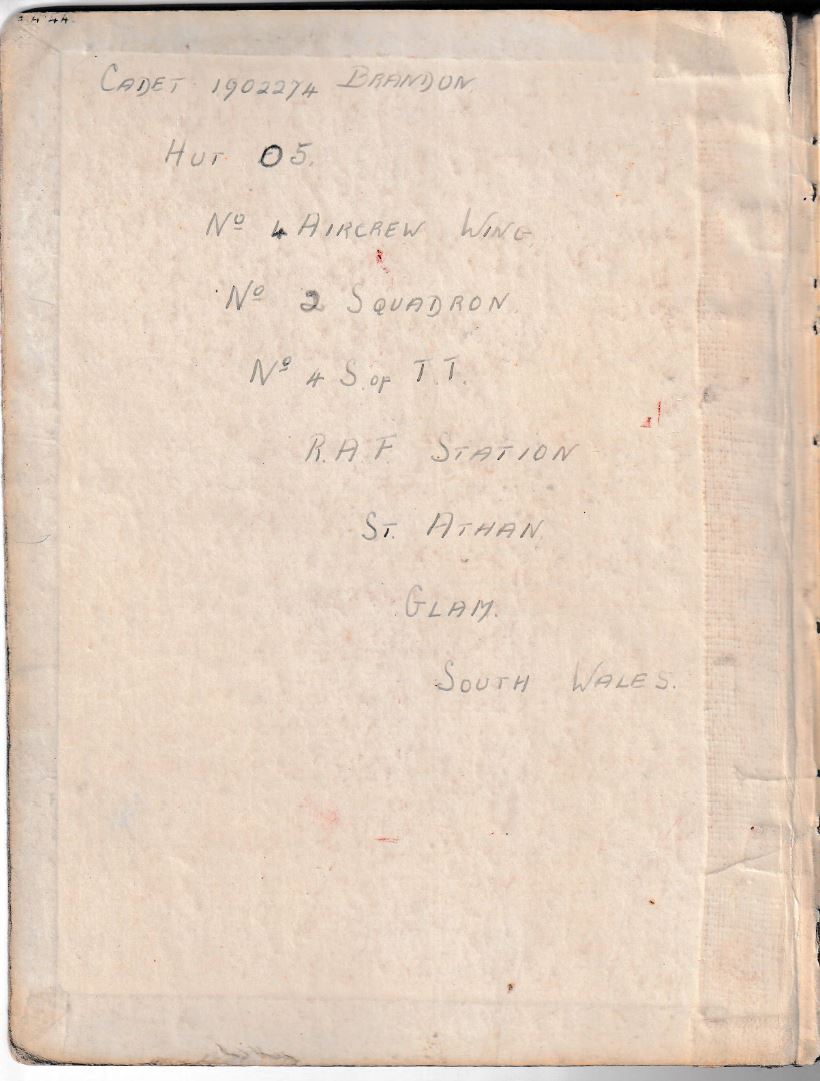 CADET 1902274 BRANDON.
HUT 05.
Nº 4 AIRCREW WING
Nº 2 SQUADRON.
Nº 4 S. OF T.T.
R.A.F. STATION
ST. ATHAN.
GLAM.
SOUTH WALES.